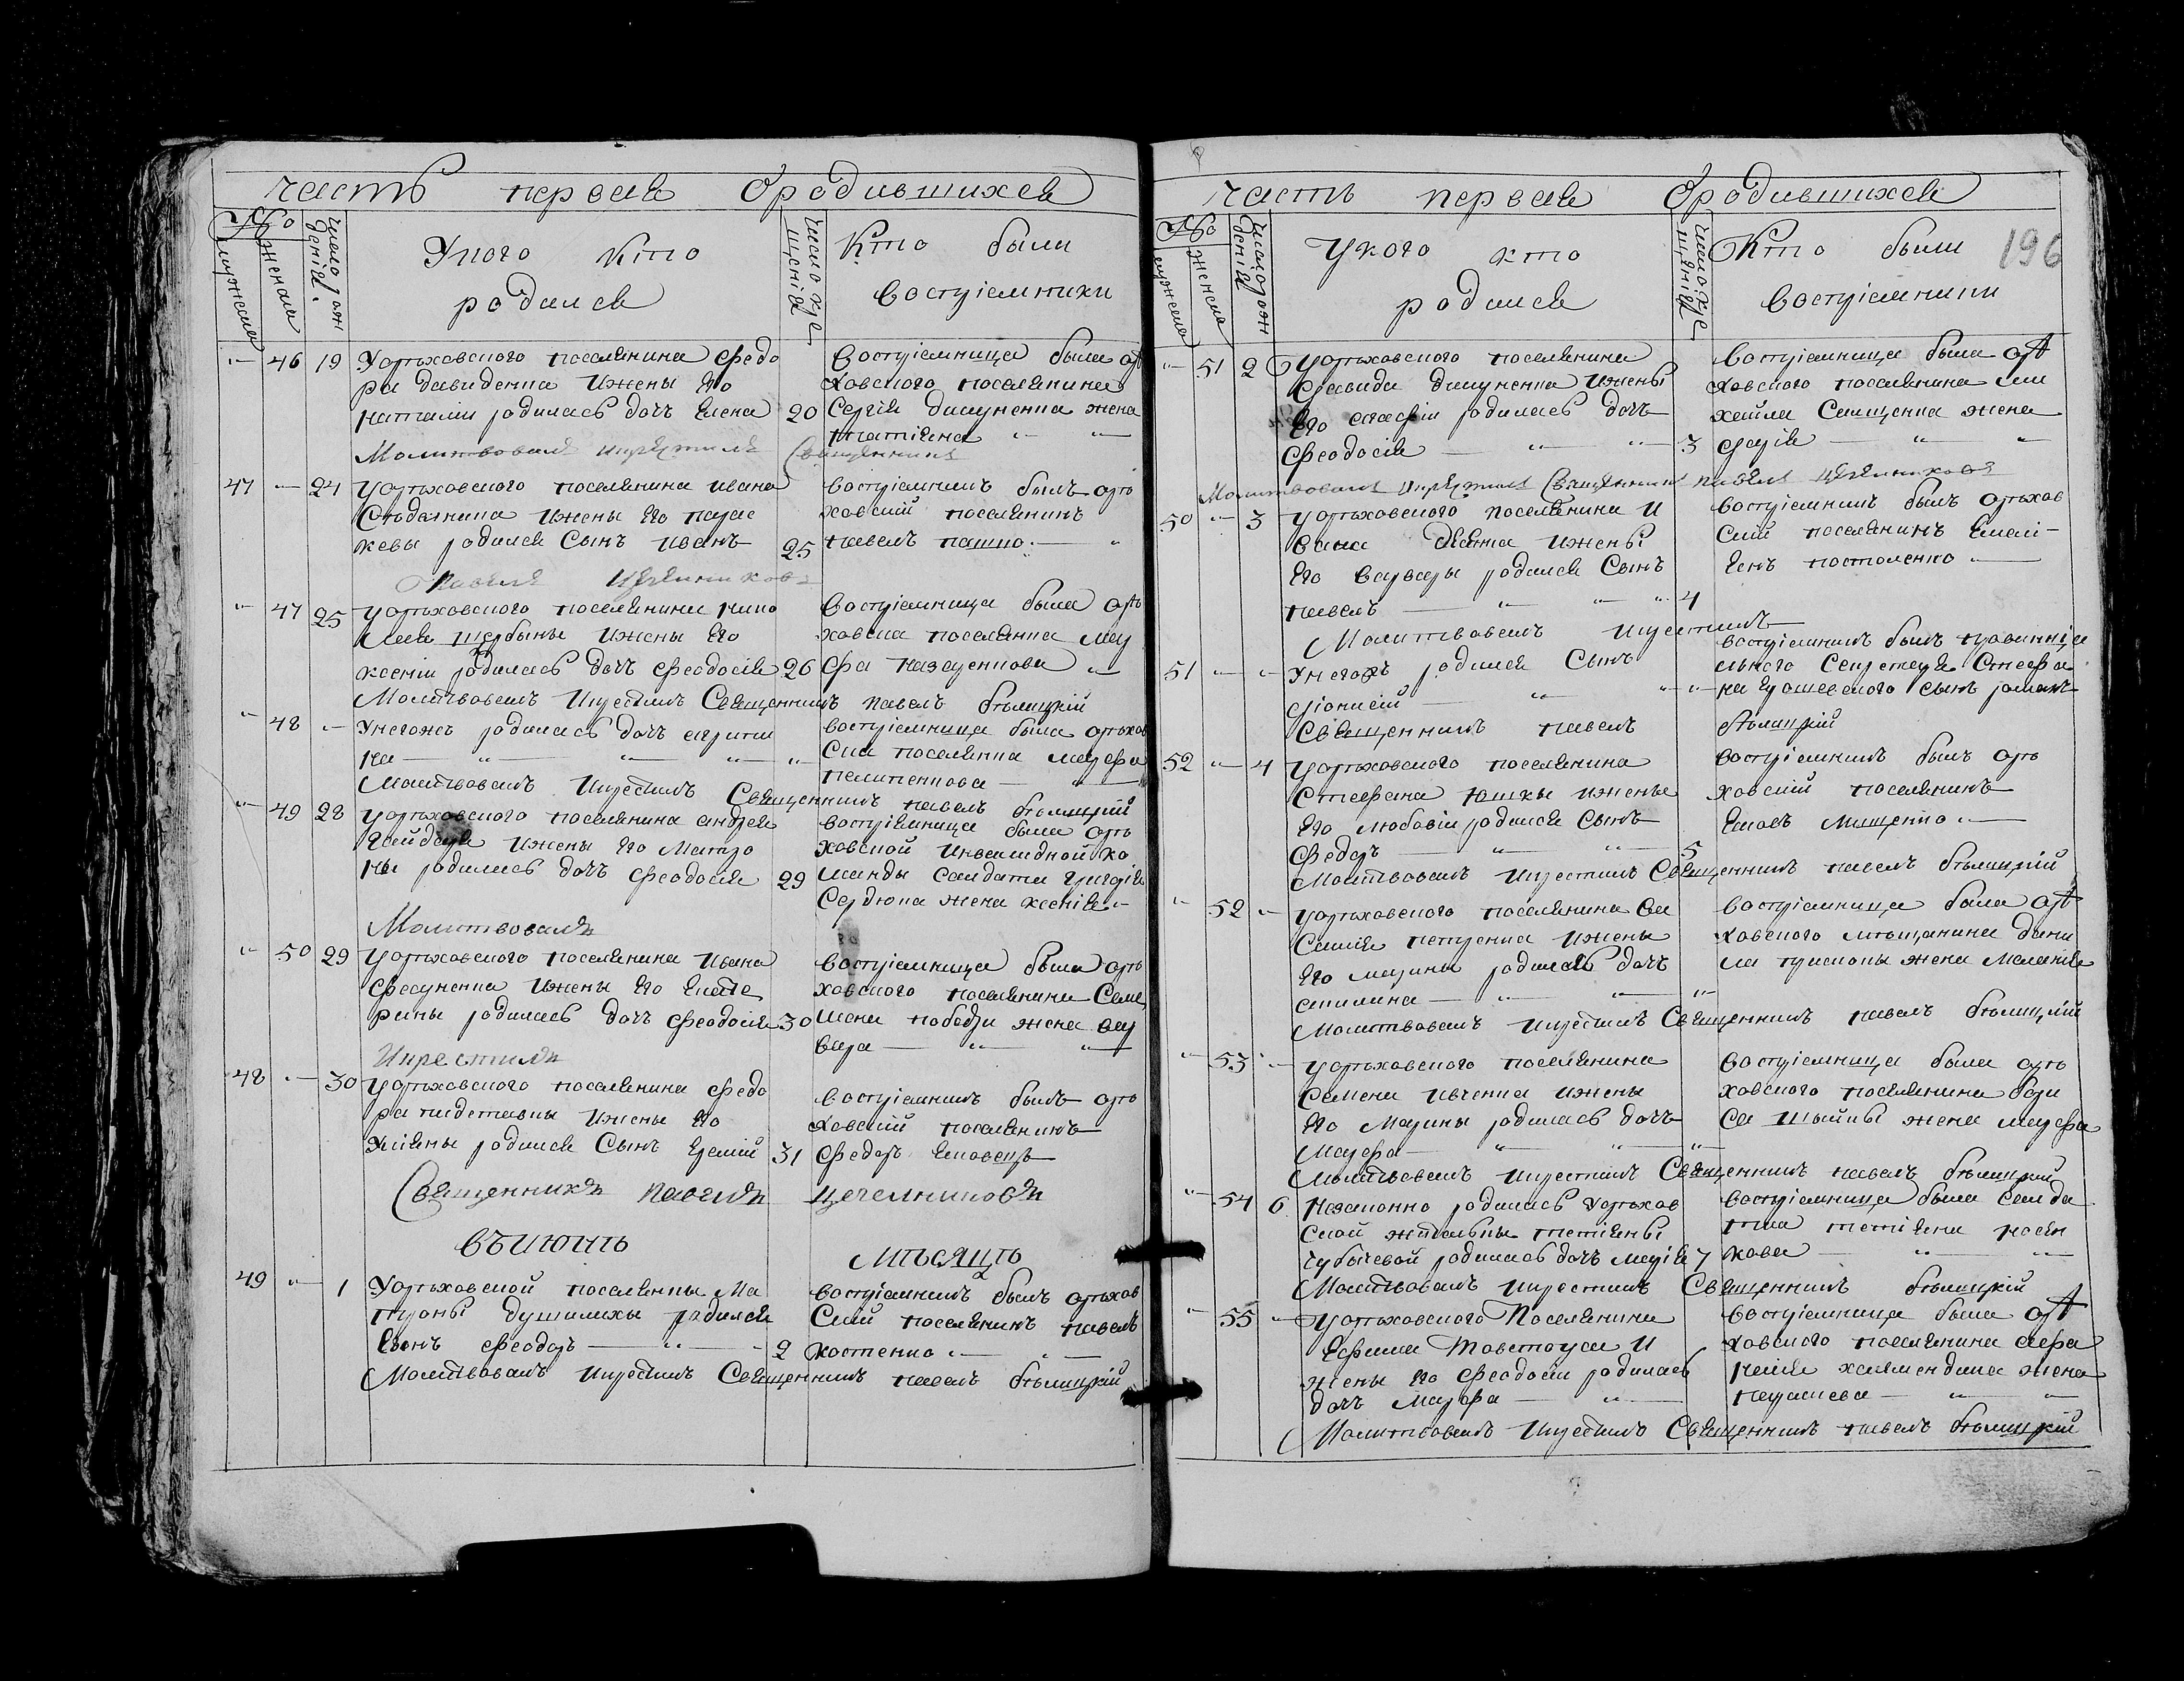 часть первая о родившихся
№
мужеска
женска
число рождения.
У кого кто
родился
число крещения
Кто были
восприемники
46 19 У орѣховского поселянина Федо
ра Давиденка и жены его
Наталіи родилась дочь Елена 20
восприемница была орѣ
ховского поселянина
Сергія жена
Татіяна
Молитвовалъ и крестилъ Священникъ
47 24 У орѣховского поселянина Ивана
и жены его Парас
кевы родился сынъ Иванъ 25
восприемникъ былъ орѣ
ховский поселянинъ
Павелъ Пашко
Павелъ
47 25 У орѣховского поселянина Нико
лая Щербины и жены его
Ксеніи родилась дочь Феодосія 26
восприемница была орѣ
ховска поселянка Мар
фа Назаренкова
Молитвовалъ и крестилъ Священникъ Павелъ Бѣлицкій
48 У негожъ родилась дочь Акрипи
на
восприемница была орѣхов
ска поселянка Марфа
Пелипенкова
Молитвовалъ и крестилъ Священникъ Павелъ Бѣлицкій
49 28 У орѣховского поселянина Андрея
Гайдара и жены его Матро
ны родилась дочь Феодосія 29
восприемница была орѣ
ховской инвалидной ко
манды солдата Григорія
Сердюка жена Ксенія
Молитвовалъ
50 29 У орѣховского поселянина Ивана
и жены его Екате
рины родилась дочь Феодосія 30
восприемница была орѣ
ховского поселянина Семе
жена Вар
вара
и крестилъ
48 30 У орѣховского поселянина Федо
ра и жены его
Уліяны родился сынъ Еремій 31
восприемникъ былъ орѣ
ховский поселянинъ
Федоръ Яковецъ
Священникъ Павелъ
въ июнѣ мѣсяцѣ
49 1 У орѣховской поселянки Ма
троны Душилихи родился
сынъ Феодоръ 2
восприемникъ былъ орѣхов
ский поселянинъ Павелъ
Костенко
Молитвовалъ и крестилъ Священникъ Павелъ Бѣлицкій
часть первая о родившихся
196
№
мужеска
женска
число рождения
У кого кто
родился
число крещения
Кто были
восприемники
51 2 У орѣховского поселянина
и жены
его родилась дочь
Феодосія 3
восприемница была орѣ
ховского поселянина Ми
хайла Сащенка жена
Дарія
Молитвовалъ и крестилъ Священникъ Павелъ
50 3 У орѣховского поселянина И
вана и жены
его Варвары родился сынъ
Павелъ 4
восприемникъ былъ орѣхов
ский поселянинъ Емелі
янъ Постоленко
Молитвовалъ и крестилъ
51 У негожъ родился сынъ
Діонисій
восприемникъ былъ
Секретаря Стефа
на сынъ Романъ
Священникъ Павелъ Бѣлицкій
52 4 У орѣховского поселянина
Стефана Юшки и жены
его Любовіи родился сынъ
Федоръ 5
восприемникъ былъ орѣ
ховский поселянинъ
Яковъ Мищенко
Молитвовалъ и крестилъ Священникъ Павелъ Бѣлицкій
52 У орѣховского поселянина Ва
силія Петренка и жены
его Марины родилась дочь
Акилина
восприемница была орѣ
ховского мѣщанина Дани
ла жена Меланія
Молитвовалъ и крестилъ Священникъ Павелъ Бѣлицкій
53 У орѣховского поселянина
Семена Ивченка и жены
его Марины родилась дочь
Марфа
восприемница была орѣ
ховского поселянина Бори
са жена Марфа
Молитвовалъ и крестилъ Священникъ Павелъ Бѣлицкій
54 6 Незаконно родилась у орѣхов
ской жительки Татіяны
родилась дочь Марія 7
восприемница была солда
тка Татіяна
Молитвовалъ и крестилъ Священникъ Бѣлицкій
55 У орѣховского Поселянина
Ефима Товстоуса и
жены его Феодосіи родилась
дочь Марфа
восприемница была орѣ
ховского поселянина Афа
насія жена
Параскева
Молитвовалъ и крестилъ Священникъ Павелъ Бѣлицкій